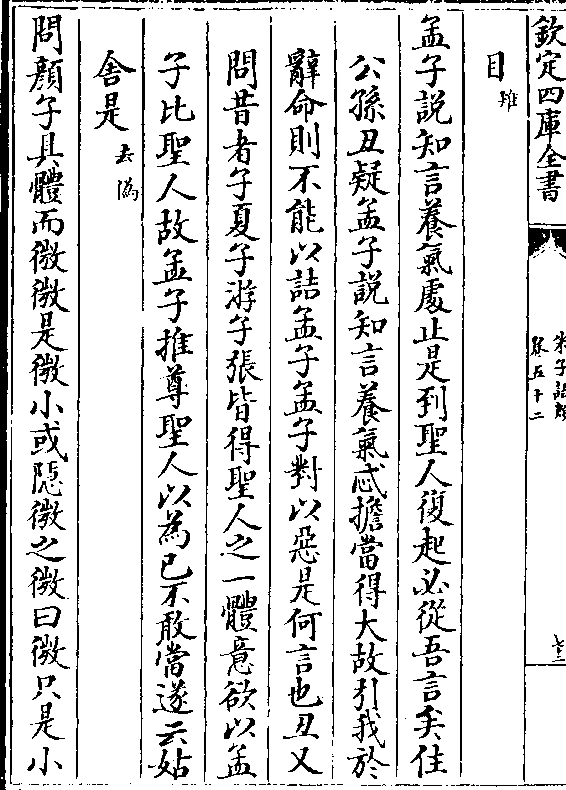 欽定四庫全書
朱子語類
卷五十二
七十二
目雉
孟子說知言養氣處止是到聖人復起必從吾言矣住
公孫丑疑孟子說知言養氣忒擔當得大故引我於
辭命則不能以詰孟子孟子對以惡是何言也丑又
問昔者子夏子游子張皆得聖人之一體意欲以孟
子比聖人故孟子推尊聖人以為己不敢當遂云姑
舍是去偽
問顏子具體而微微是微小或隱微之微曰微只是小